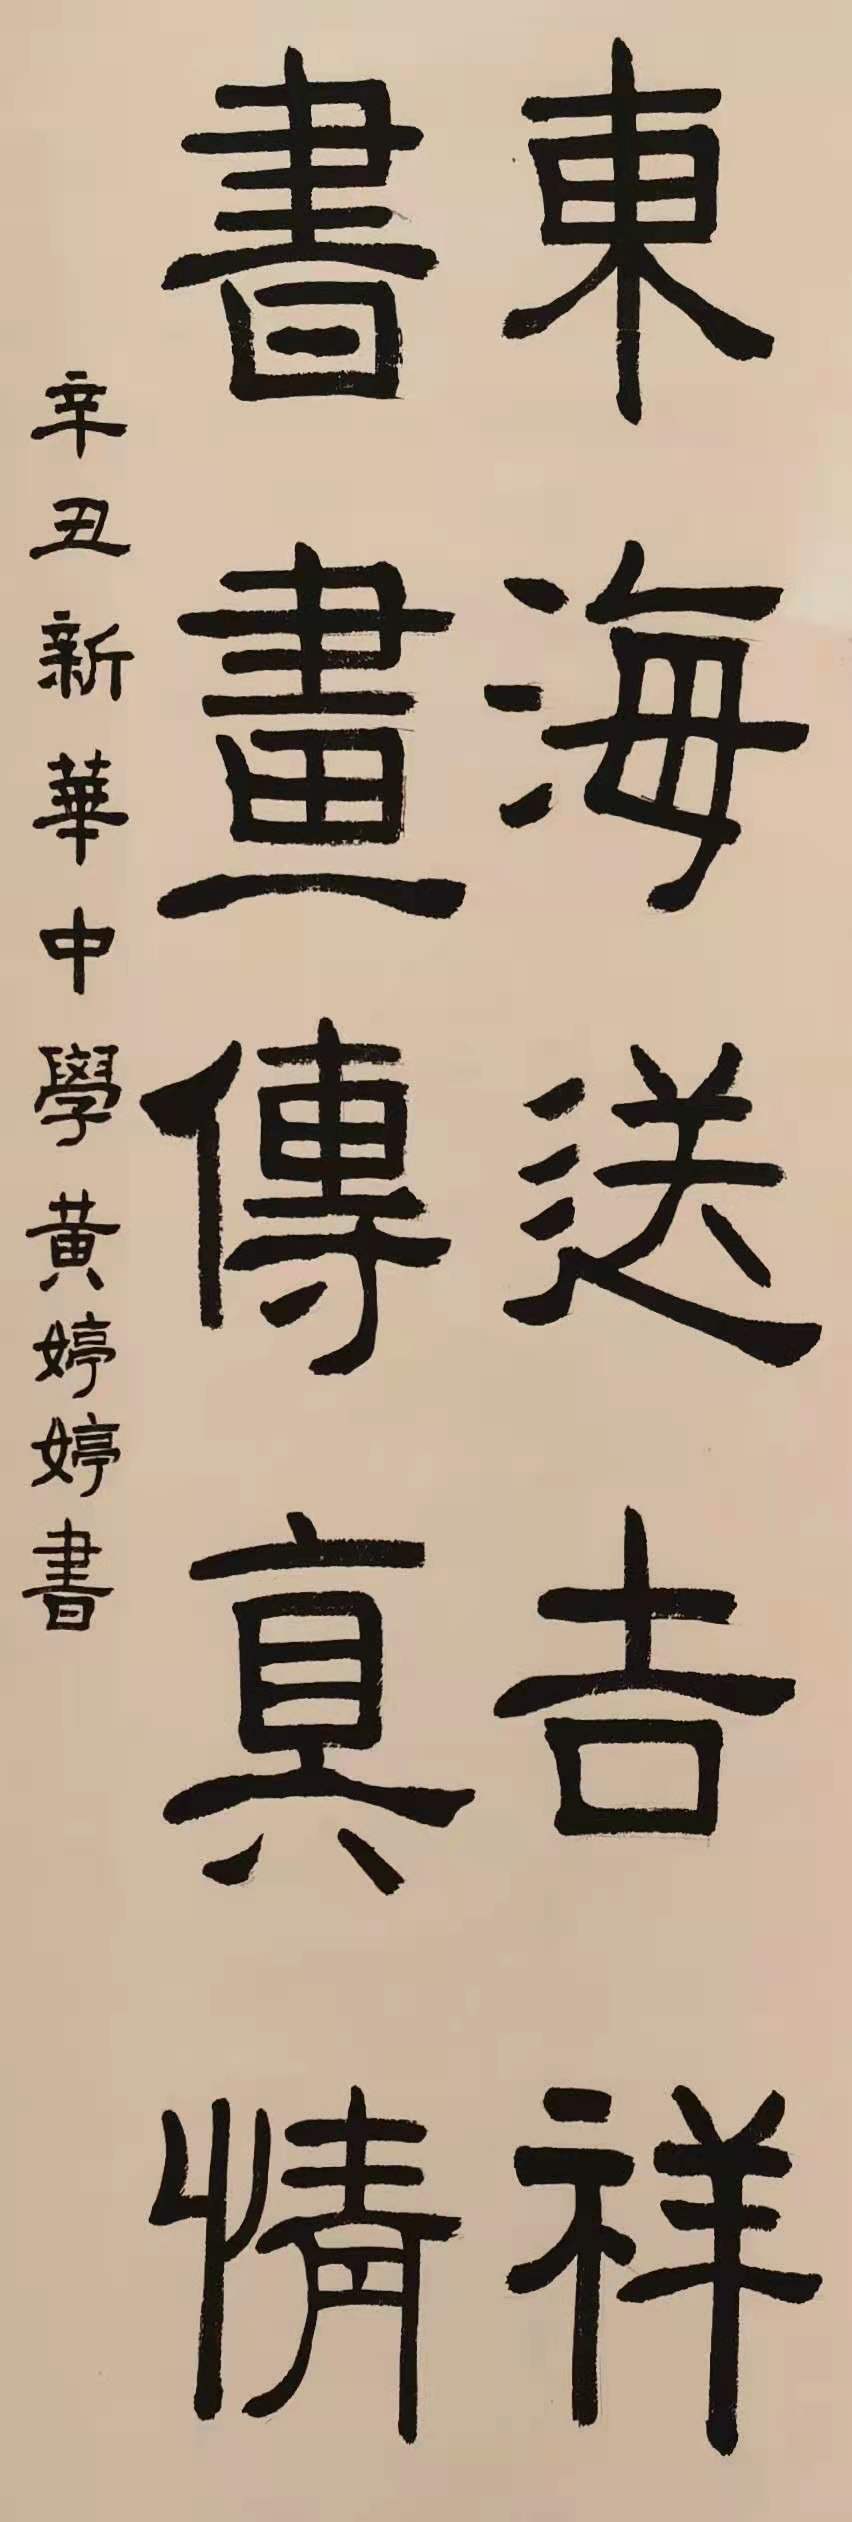 東海送吉祥
書畫傳真情
辛丑新華中學黄婷婷書